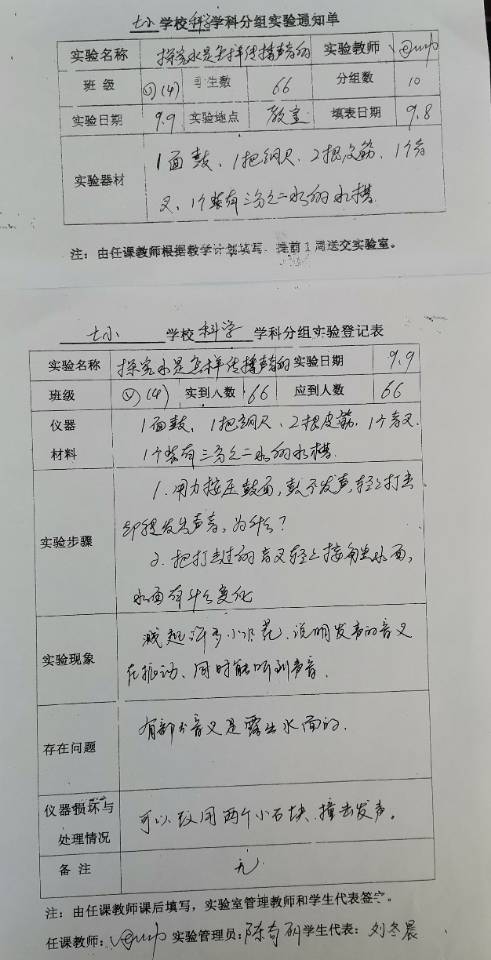 七小学校科学学科分组实验通知单
实验名称 探究水是怎样传播声音的 实验教师
班 级 四(4) 学生数 66 分组数 10
实验日期 9.9 实验地点 教室 填表日期 9.8
1面鼓、1把钢尺、2根皮筋、1个音
实验器材
叉、1个装有三分之二水的水槽.
注：由任课教师根据教学计划填写，提前1周送交实验室。
七小 学校 科学 学科分组实验登记表
实验名称 探究水是怎样传播声音的 实验日期 9.9
班级 四(4) 实到人数 66 应到人数 66
仪器 1面鼓、1把钢尺、2根皮筋、1个音叉.
材料 1个装有三分之二水的水槽.
1. 用力按压鼓面，鼓不发声，轻轻打击
实验步骤 却能发出声音，为什么？
2. 把打击过的音叉轻轻接触水面，
水面有什么变化
溅起许多小水花、说明发声的音叉
实验现象
在振动、同时能听到声音.
有部分音叉是露出水面的.
存在问题
仪器损坏与
可以改用两个小石块、撞击发声。
处理情况
备 注 无
注：由任课教师课后填写，实验室管理教师和学生代表签字。
任课教师： 实验管理员：陈奇研 学生代表：刘冬晨